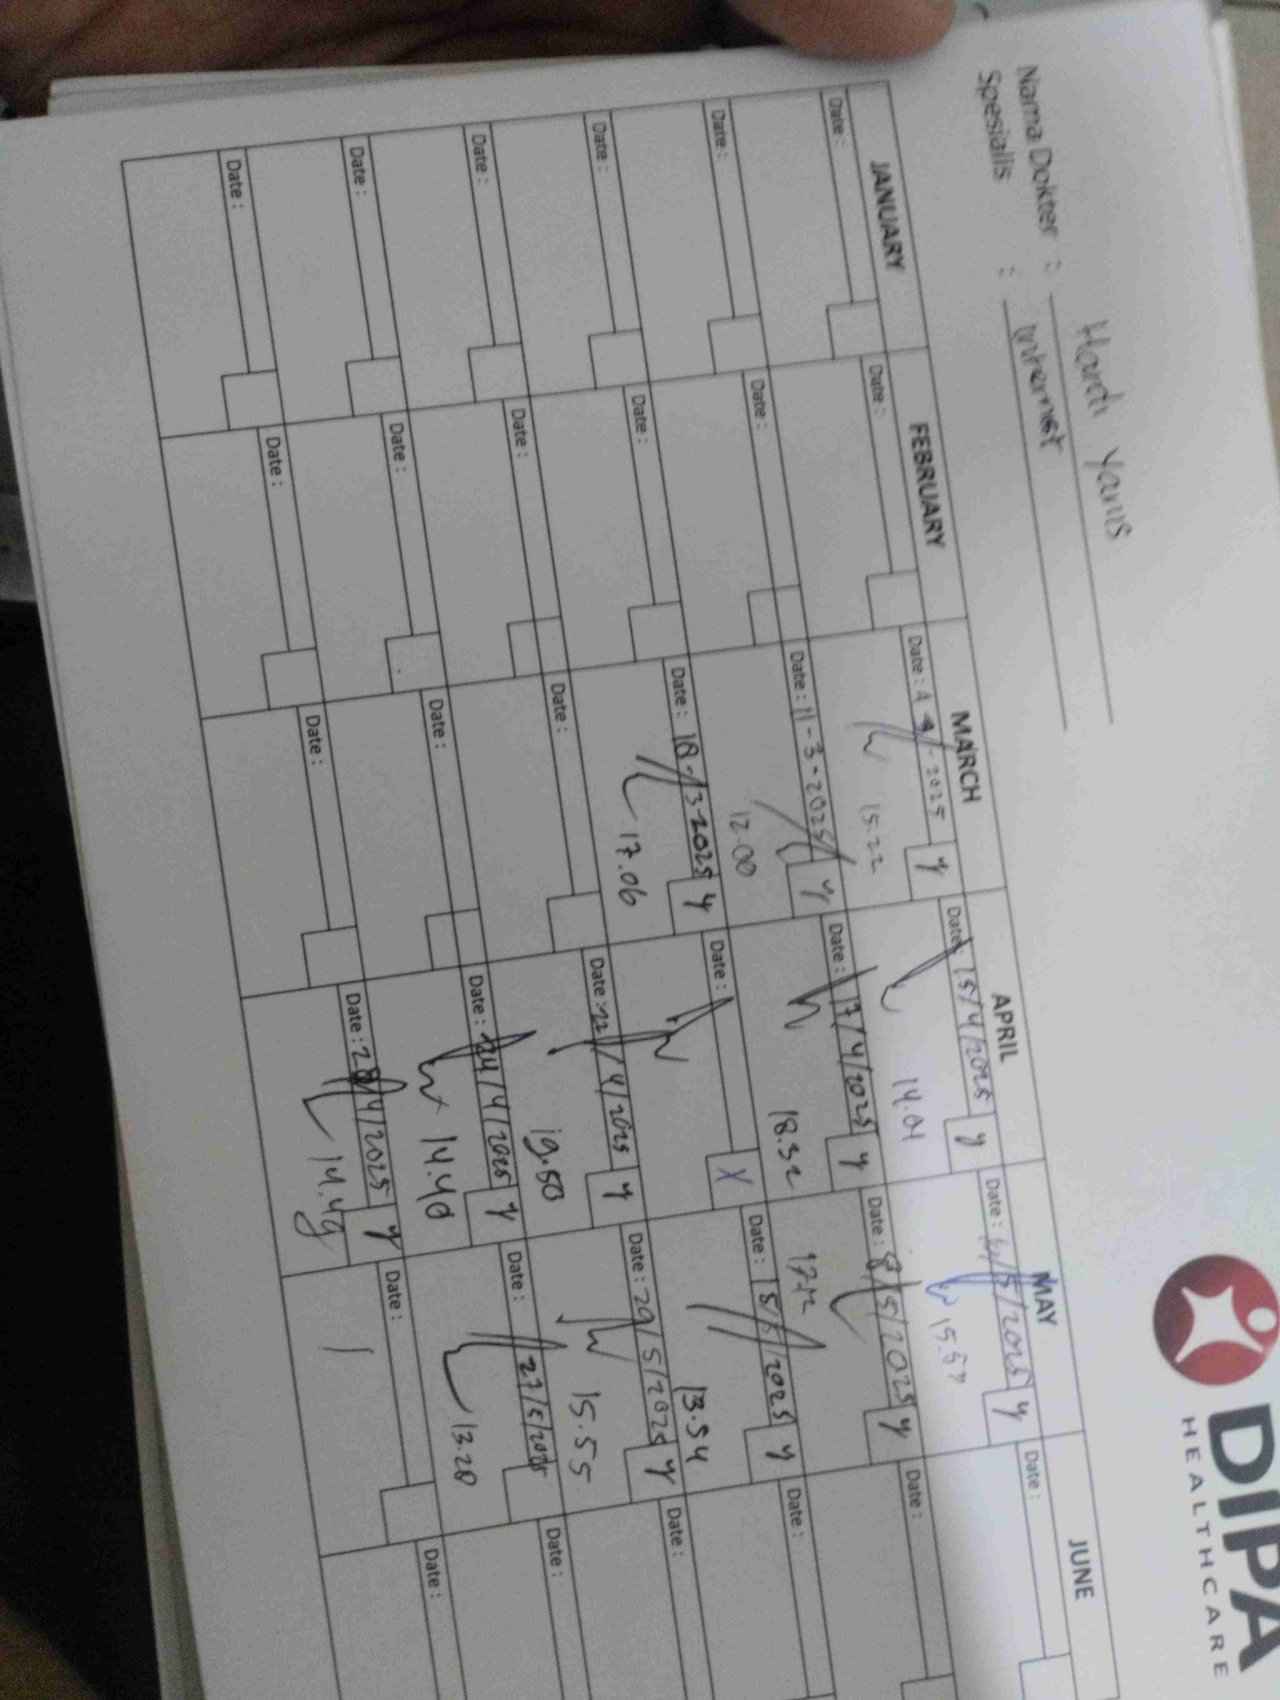 DIPA
HEALTHCARE
Nama Dokter : Hardi Yanis
Spesialis : Internist
JANUARY FEBRUARY MARCH APRIL MAY JUNE
Date: Date: Date: 2025 y Date: 15/4/2025 y Date: /5/2025 y Date:
15.22 14.01 15.57
Date: Date: Date: 11-3-2025 y Date: 17/4/2025 y Date: 8/5/2025 y Date:
12.00 18.32 17.12
Date: Date: Date: 18-3-2025 y Date: X Date: 15/5/2025 y Date:
17.06 13.54
Date: Date: Date: Date: 22/4/2025 y Date: 20/5/2025 y Date:
19.50 15.55
Date: Date: Date: Date: 24/4/2025 y Date: 27/5/2025 Date:
14.40 13.20
Date: Date: Date: Date: 28/4/2025 y Date: Date:
14.49